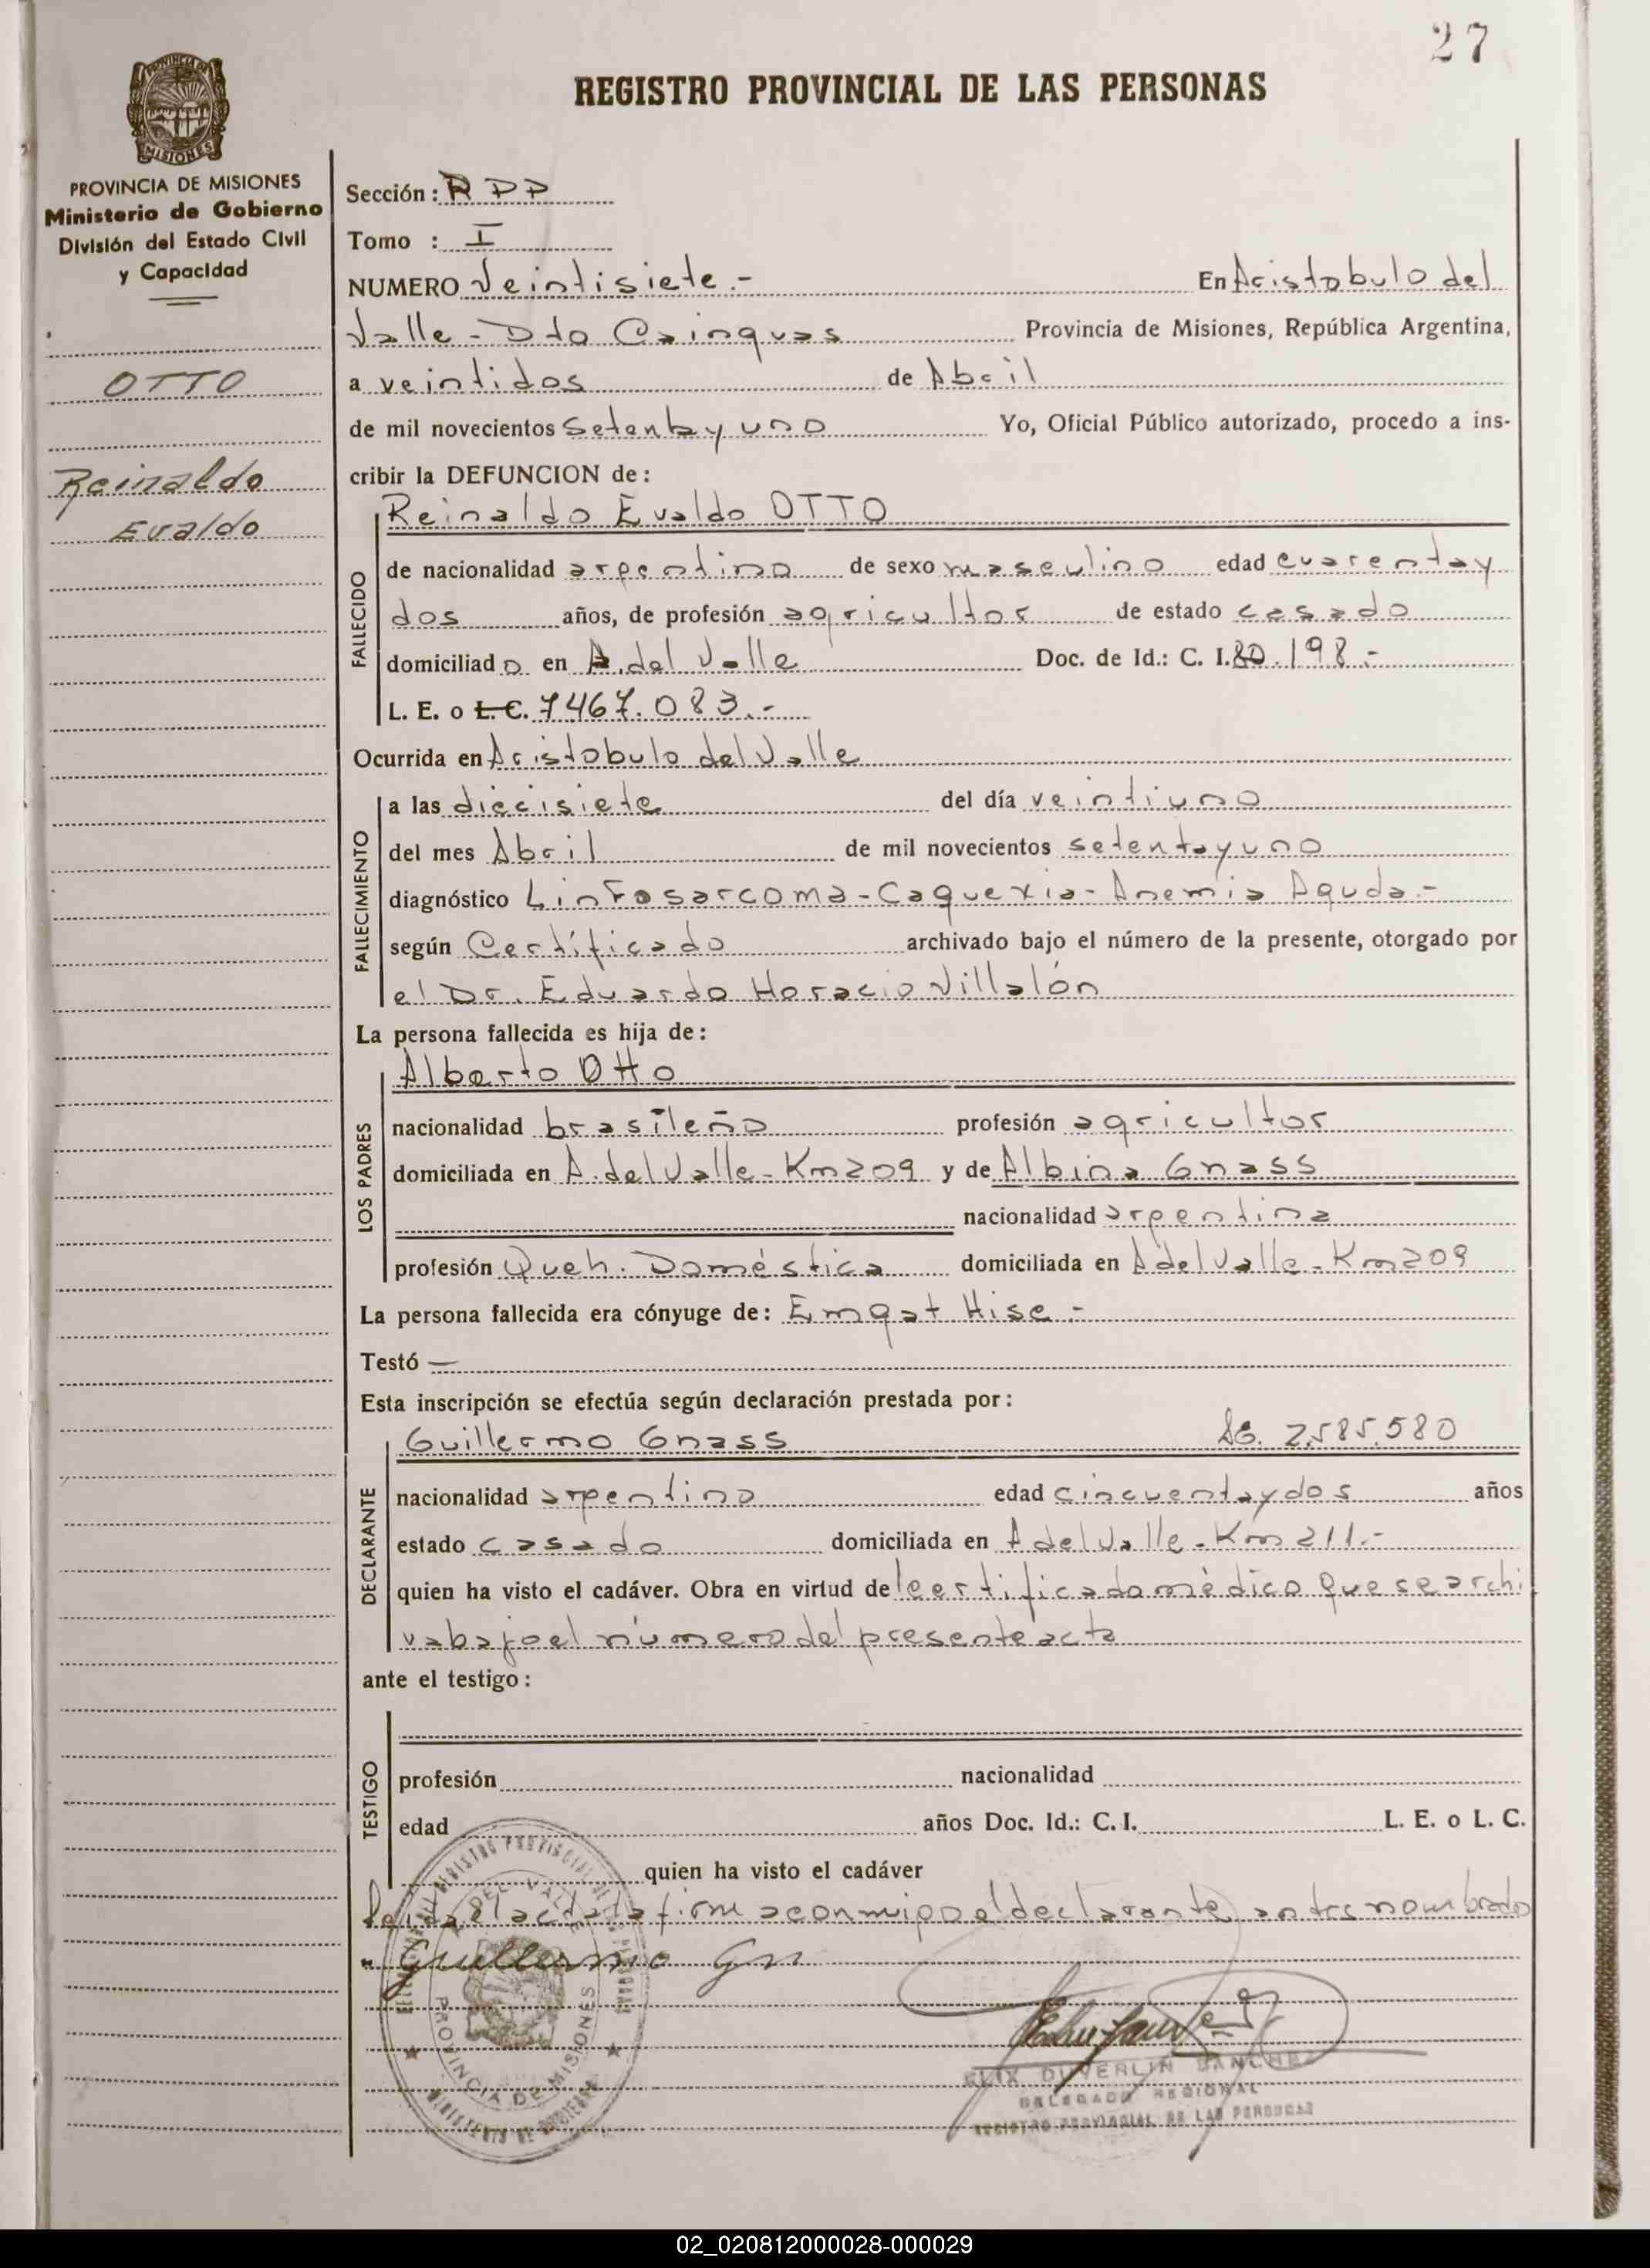 27
REGISTRO PROVINCIAL DE LAS PERSONAS
PROVINCIA DE MISIONES
Ministerio de Gobierno
División del Estado Civil
y Capacidad
OTTO
Reinaldo
Evaldo
Sección: R P P
Tomo : I
NUMERO Veintisiete.- En Aristobulo del
Valle - Dto Cainguas Provincia de Misiones, República Argentina,
a veintidos de Abril
de mil novecientos Setenta y uno Yo, Oficial Público autorizado, procedo a ins-
cribir la DEFUNCION de:
Reinaldo Evaldo OTTO
FALLECIDO
de nacionalidad argentina de sexo masculino edad cuarenta y
dos años, de profesión agricultor de estado casado
domiciliado en A. del Valle Doc. de Id.: C. I. 80.198.-
L. E. o L. C. 7467.083.-
Ocurrida en Aristobulo del Valle
FALLECIMIENTO
a las diecisiete del día veintiuno
del mes Abril de mil novecientos setenta y uno
diagnóstico Linfosarcoma - Caquexia - Anemia Aguda.-
según Certificado archivado bajo el número de la presente, otorgado por
el Dr. Eduardo Horacio Villalón
La persona fallecida es hija de:
LOS PADRES
Alberto Otto
nacionalidad brasileño profesión agricultor
domiciliada en A. del Valle - Km 209 y de Albina Gnass
nacionalidad argentina
profesión Queh. Doméstica domiciliada en A del Valle - Km 209
La persona fallecida era cónyuge de: Emgat Hise.-
Testó —
Esta inscripción se efectúa según declaración prestada por:
DECLARANTE
Guillermo Gnass 2.585.580
nacionalidad argentino edad cincuenta y dos años
estado casado domiciliada en A del Valle - Km 211.-
quien ha visto el cadáver. Obra en virtud del certificado médico que se archi
va bajo el número del presente acta
ante el testigo:
TESTIGO
profesión nacionalidad
edad años Doc. Id.: C. I. L. E. o L. C.
quien ha visto el cadáver
Leida el acta la firma con migo el declarante antes nombrado
Guillermo Gn
DEL VALLE
PROVINCIA DE MISIONES
MINISTERIO DE GOBIERNO
DUVERLIN SANCHEZ
DELEGADO REGIONAL
REGISTRO PROVINCIAL DE LAS PERSONAS
02_020812000028-000029